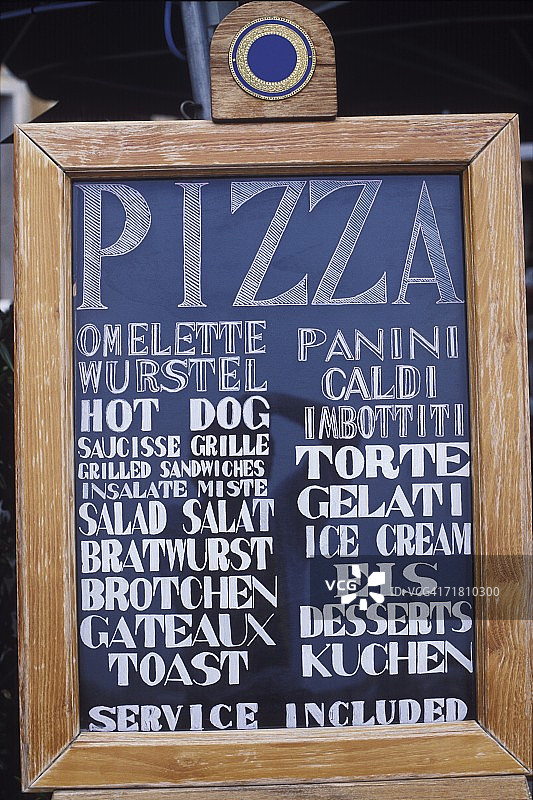 PIZZA
OMELETTE
WURSTEL
HOT DOG
SAUCISSE GRILLE
GRILLED SANDWICHES
INSALATE MISTE
SALAD SALAT
BRATWURST
BROTCHEN
GATEAUX
TOAST
PANINI
CALDI
IMBOTTITI
TORTE
GELATI
ICE CREAM
EIS
DESSERTS
KUCHEN
SERVICE INCLUDED
VCG
ID: VCG41171810300